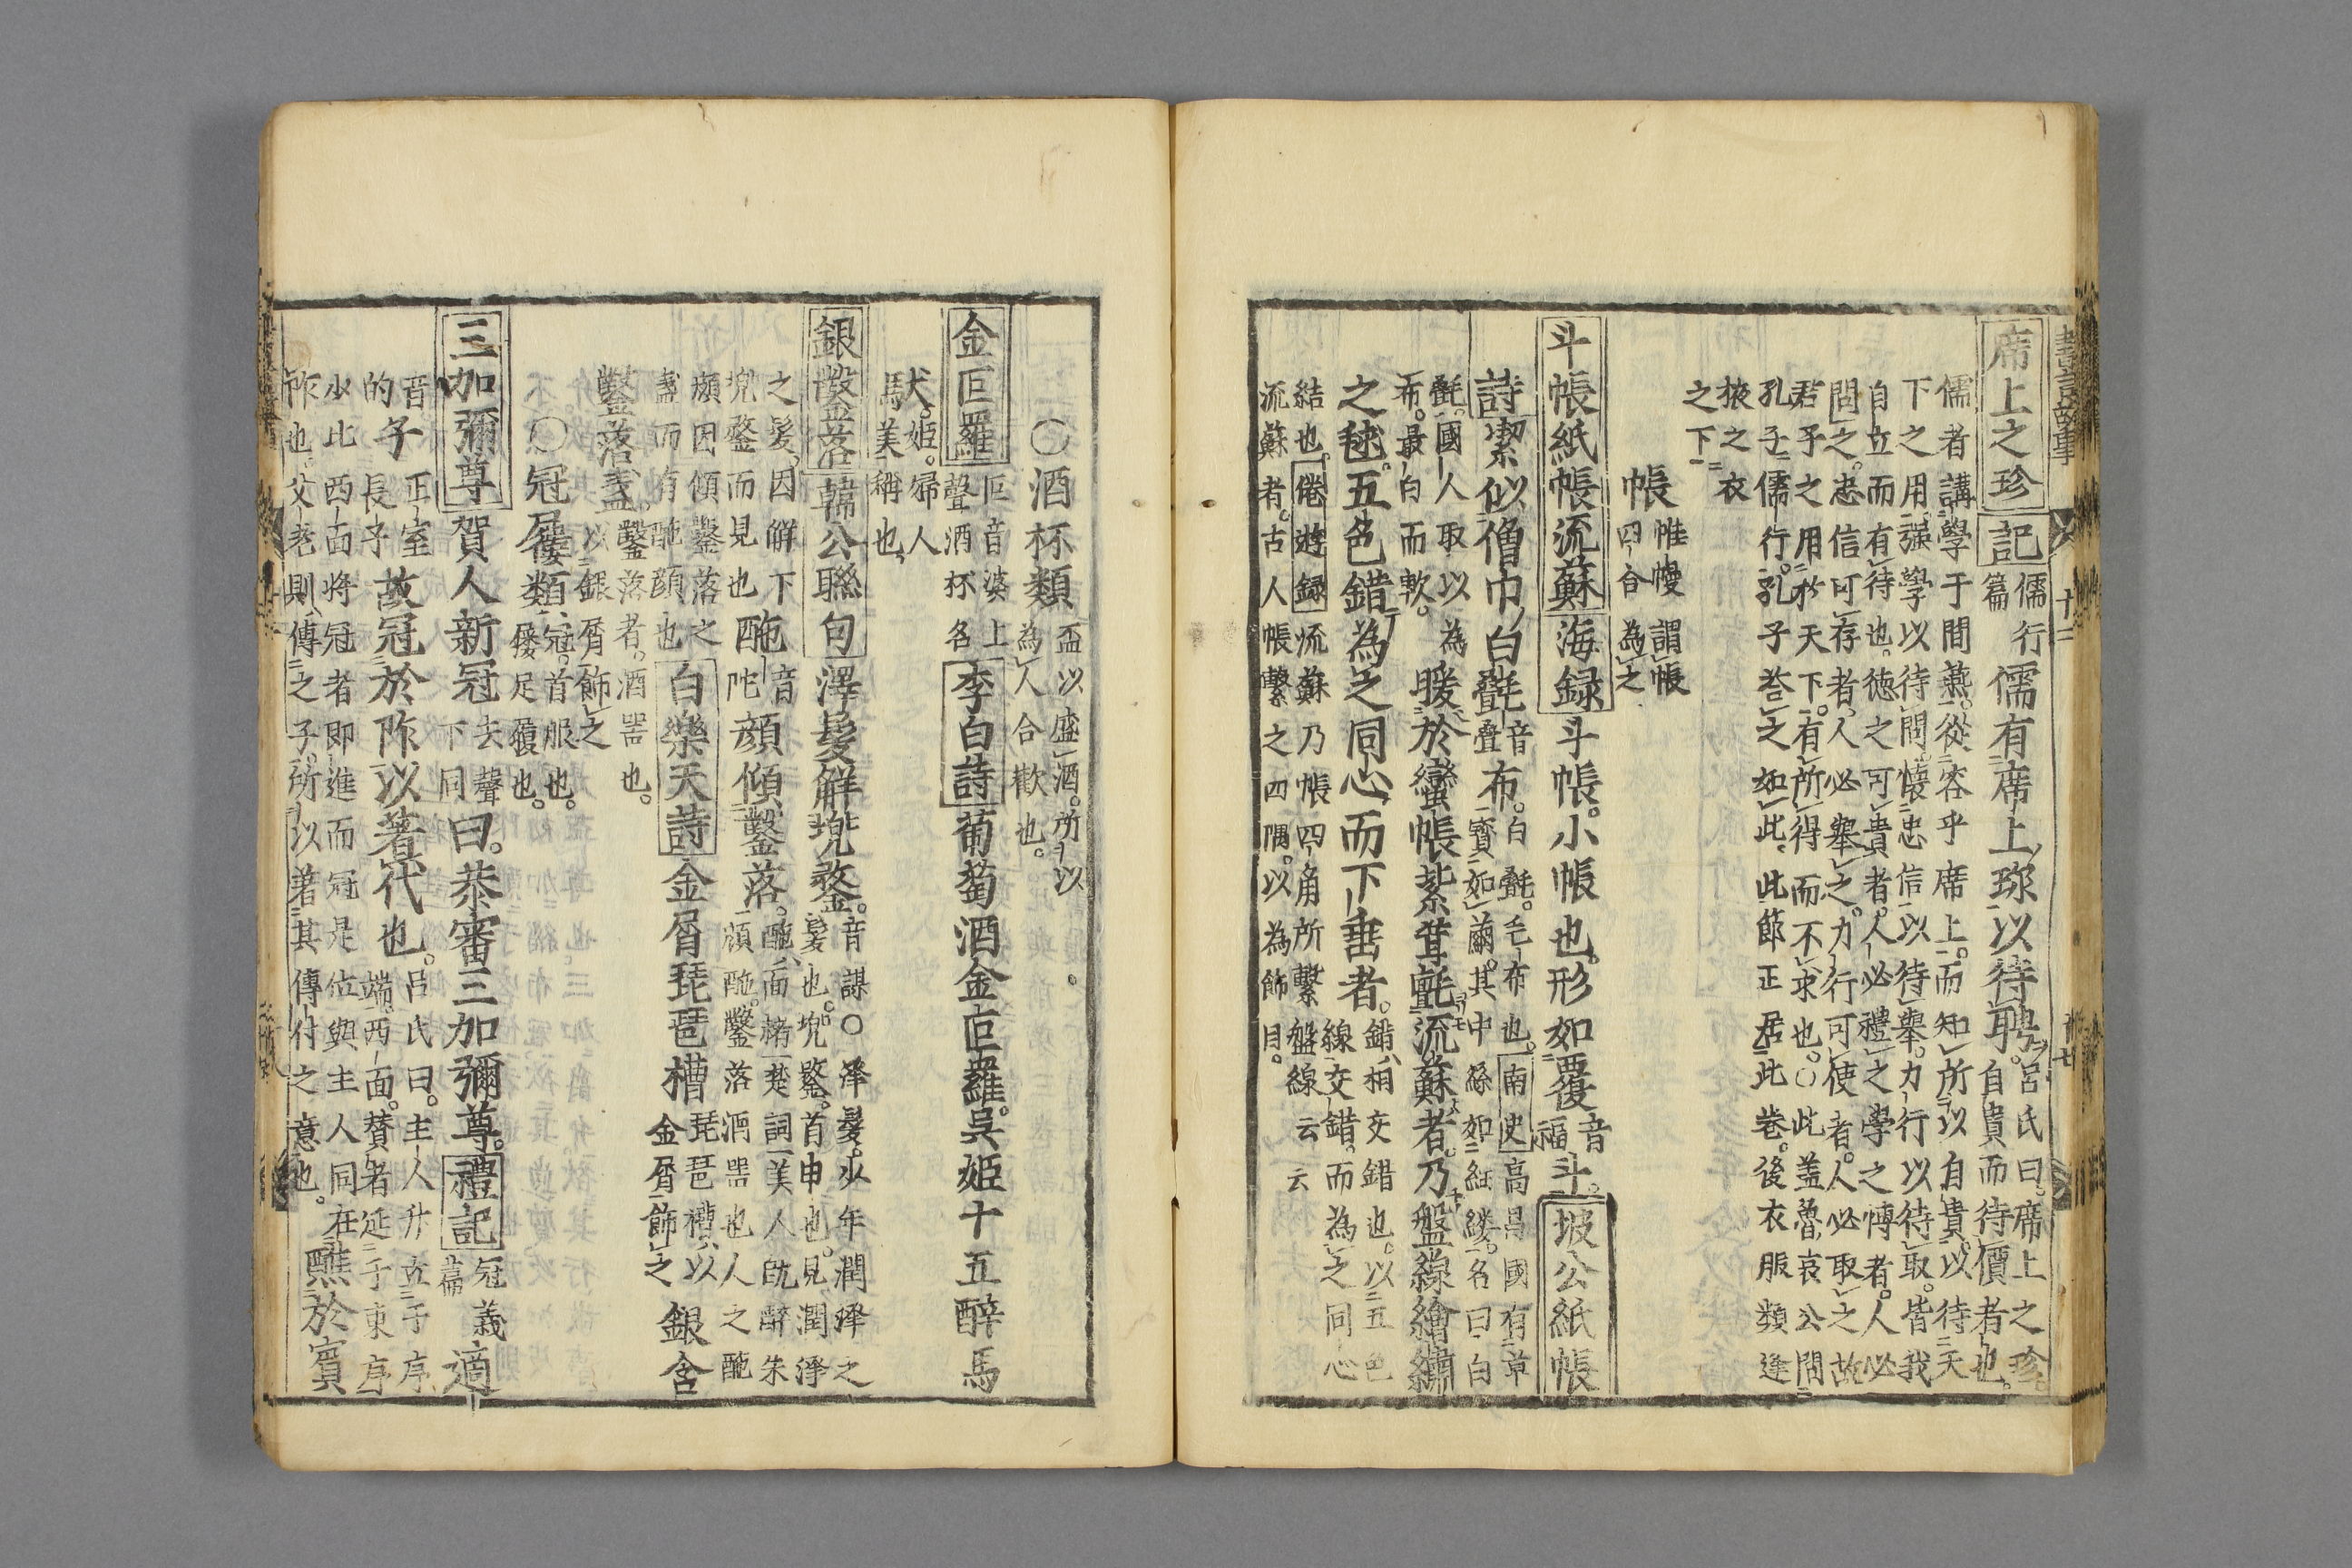 席上之珍 記 儒行篇 儒有席上珎以待聘。呂氏曰。席上之珍。自貴而待價者也。
儒者講學于間燕。從容乎席上。而知所以自貴。以待天
下之用。强學以待問。懷忠信以待擧。力行以待取。皆我
自立而有待也。德之可貴者。人必禮之學之慱者。人必
問之。忠信可存者人必擧之。力行可使者。人必取之故
君子之用於天下。有所得而不求也。○此盖魯哀公問
孔子儒行。孔子荅之如此。此節正居此卷。後衣服類逢
掖之衣
之下
帳 帷幔謂帳四合為之
斗帳紙帳流蘇 海録 斗帳。小帳也。形如覆音福斗。坡公紙帳
詩 潔似僧巾白㲲音疊布。白㲲。毛布也。南史高昌國有草
實如繭。其中絲如纑縷。名曰白
㲲。國人取以為
布。最白而軟。 暖於蠻帳紫茸氈流蘇者。乃盤線繪繡
之毬。五色錯為之同心而下垂者。錯相交錯也。以五色
線交錯。而為之同心
結也。倦遊録流蘇乃帳四角所繫盤線云云
流蘇者。古人帳繫之四隅。以為飾目。
○酒杯類 盃以盛酒。所以為人合歡也。
金叵羅 叵音婆上聲酒杯名 李白詩 葡萄酒金叵羅。吳姬十五醉馬
馱。姬。婦人
美稱也
銀鑿落 韓公聯句 澤髮解兠鍪。音謀○澤髮。少年潤澤之
髮也。兠鍪。首申也。見潤澤
之髮因解下
兠鍪而見也 酡音陀顔傾鑿落。酡面楮楚詞美人既醉朱
顔酡。鑿落酒噐也人之酡
顔因傾鑿落之
盞而有酡顔也 白樂天詩 金屑琵琶槽琵琶槽以金屑飾之 銀含
鑿落盞。鑿落者。酒噐也。
以銀屑飾之
○冠屨類 冠。首服也。屨足履也。
三加彌尊 賀人新冠去聲下同曰。恭審三加彌尊。禮記 冠義篇 適
音的子正室長子故冠於阼以著代也。呂氏曰。主人升立于序
端。西面。賛者延于東序
少比西面將冠者即進而冠是位與主人同在
阼也。父老則傳之子。所以著其傳付之意也。 醮於賓